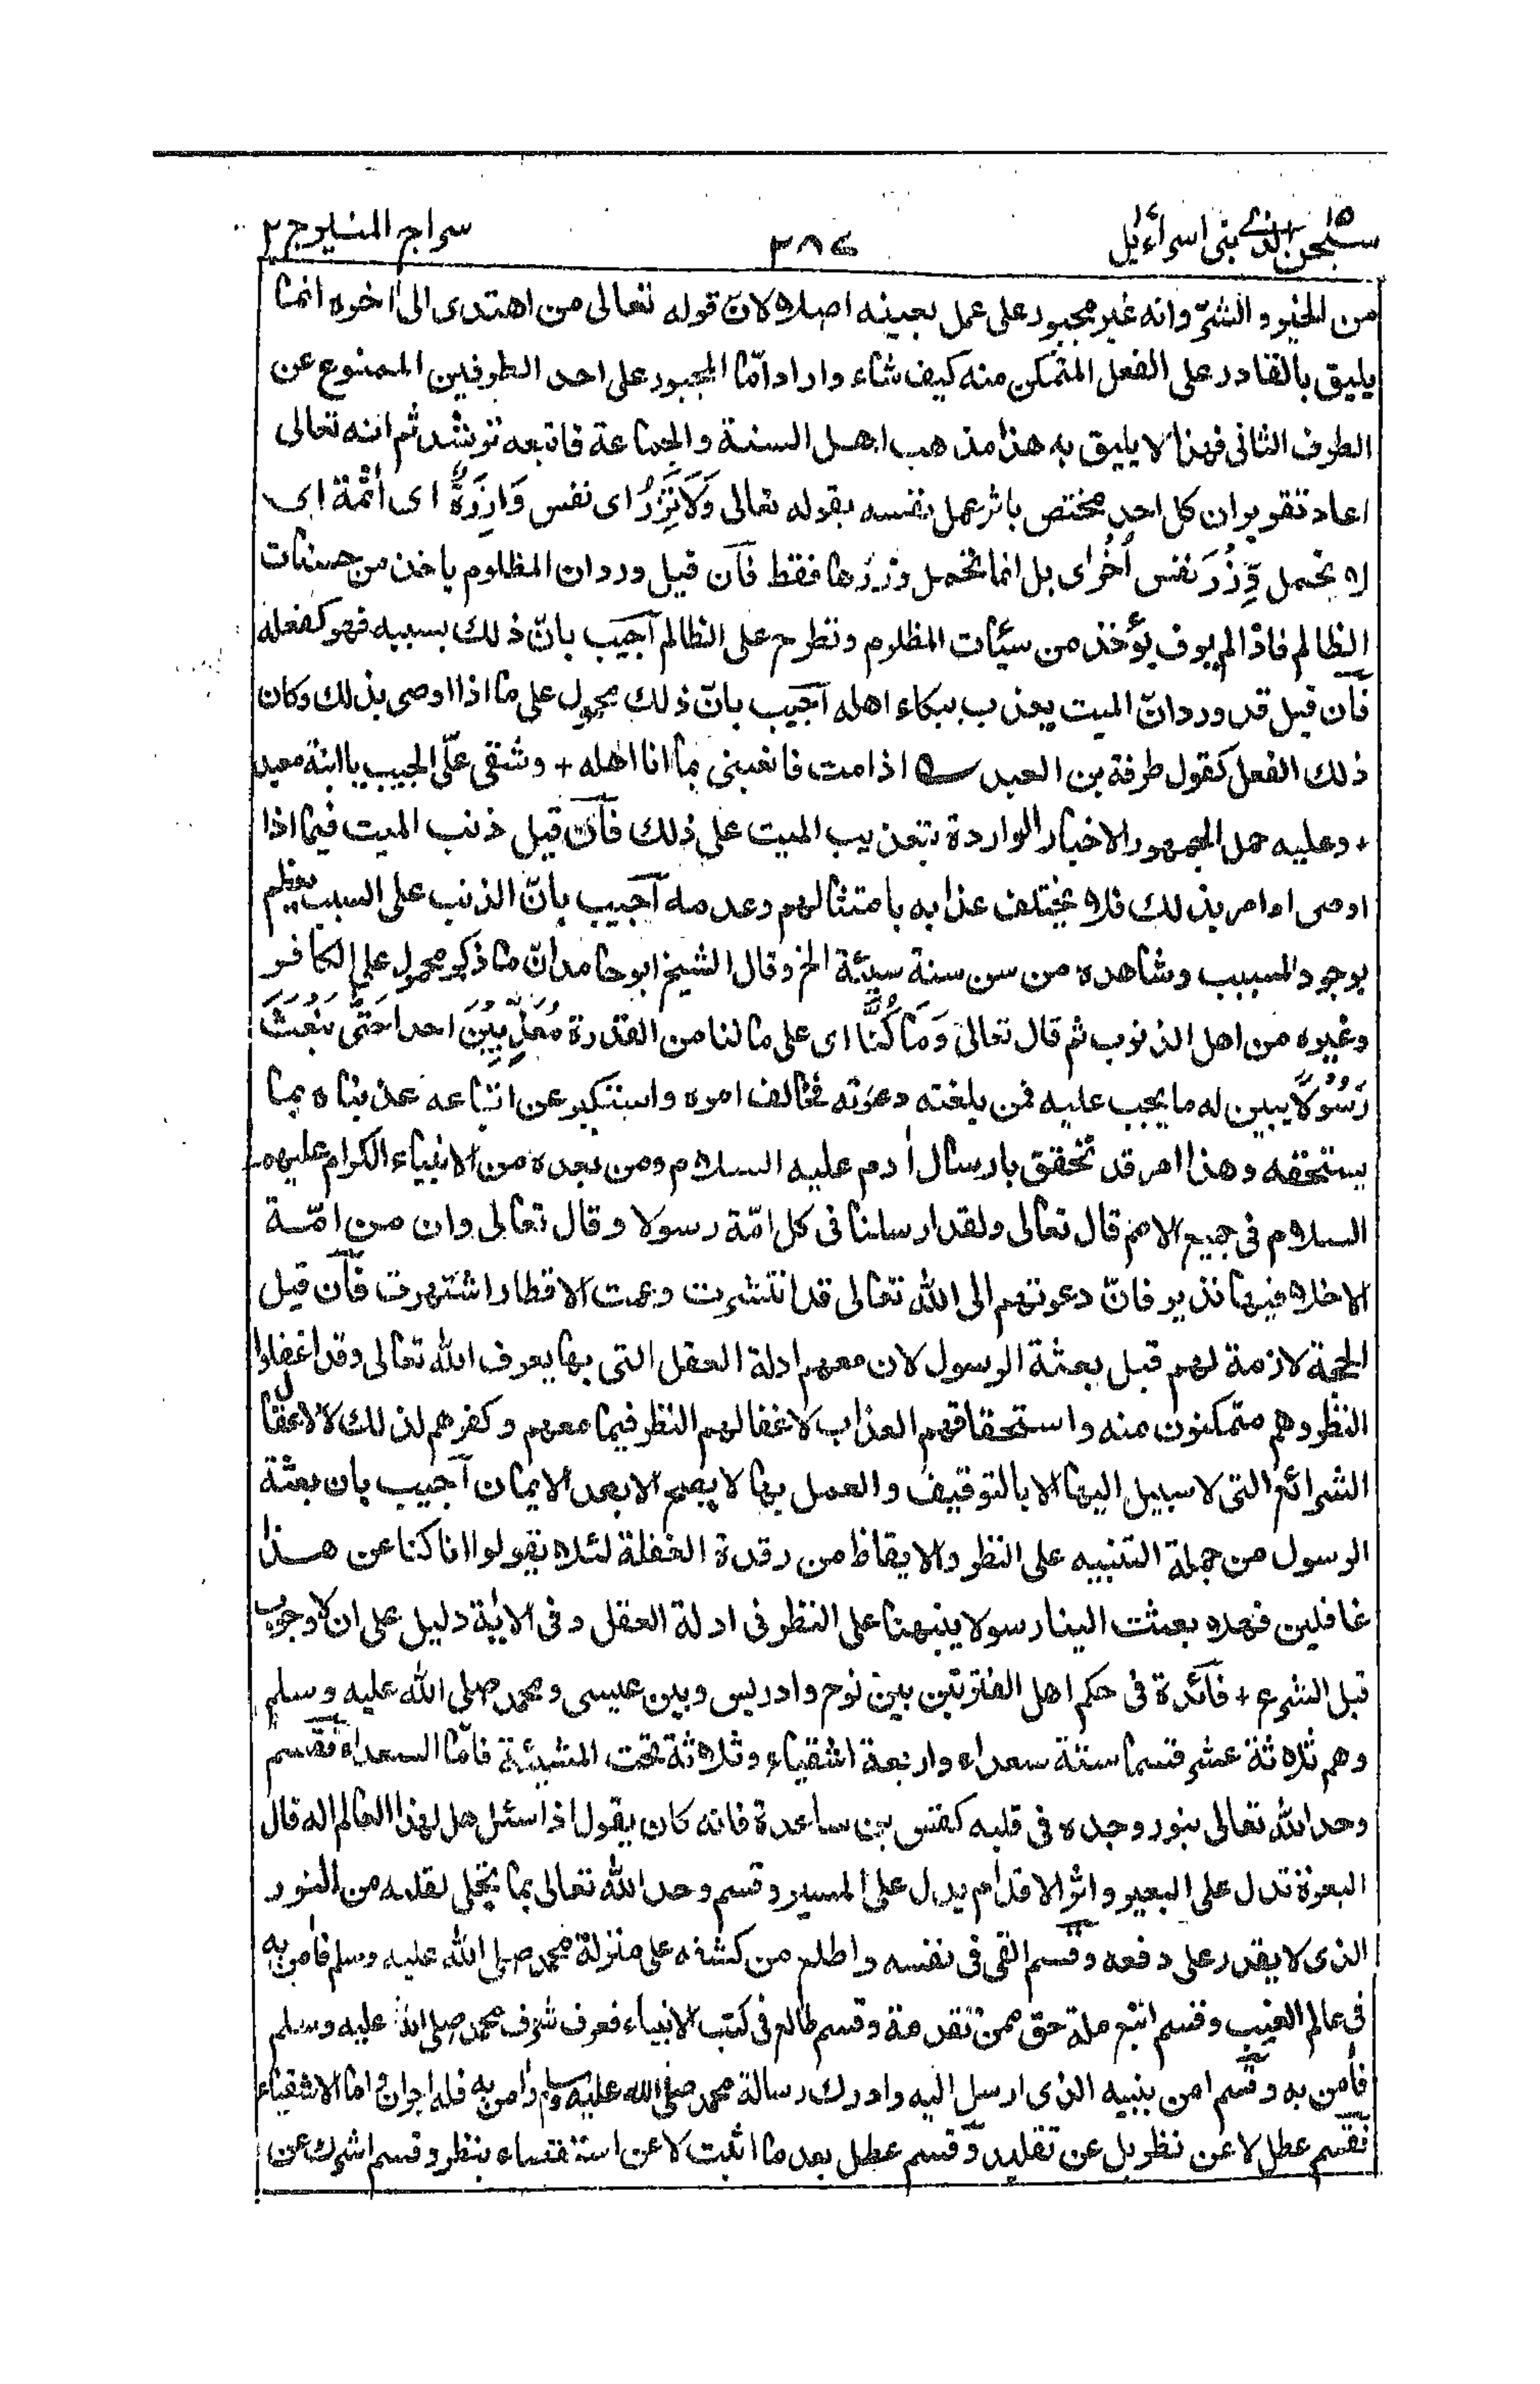 سبحن الذى ١٥ بنى اسرائيل ١٧ ٣٨٤ سراج المنير ج ٢
من الخير والشرّ وانه غير مجبور على عمل بعينه اصلا لان قوله تعالى من اهتدى الى اخره انما
يليق بالقادر على الفعل المتمكن منه كيف شاء واراد امّا المجبور على احد الطرفين الممنوع عن
الطرف الثانى فهذا لا يليق به هذا مذهب اهل السنة والجماعة فاتبعه ترشد ثم انه تعالى
اعاد تقرير ان كل احد مختص باثر عمل نفسه بقوله تعالى وَلَا تَزِرُ اى نفس وَازِرَةٌ اى اٰثمة اى
لا تحمل وِّزْرَ نفس اُخْرٰى بل انما تحمل وزرها فقط فَاٰن قيل ورد ان المظلوم ياخذ من حسنات
الظالم فاذا لم يوف يؤخذ من سيّاٰت المظلوم وتطرح على الظالم اٰجيب بانّ ذلك بسببه فهو كفعله
فَاٰن قيل قد ورد انّ الميت يعذب ببكاء اهله اٰجيب بانّ ذلك محمول على ما اذا اوصى بذلك وكان
ذلك الفعل كقول طرفة بن العبد ؎ اذا مت فانعينى بما انا اهله + وشقى علىّ الجيب يا ابنة معبد
+ وعليه حمل الجمهور الاخبار الواردة بتعذيب الميت على ذلك فَاٰن قيل ذنب الميت فيما اذا
اوصى او امر بذلك فلا يختلف عذابه بامتثالهم وعدمه اٰجيب بانّ الذنب على السبب يعظم
بوجود المسبب وشاهده من سن سنة سيئة الخ وقال الشيخ ابو حامد انّ ما ذكر محمول على الكافر
وغيره من اهل الذنوب ثم قال تعالى وَمَا كُنَّا اى على ما لنا من القدرة مُعَذِّبِيْنَ احدا حَتّٰى نَبْعَثَ
رَسُوْلًا يبين له ما يجب عليه فمن بلغته دعوته فخالف امره واستكبر عن اتباعه عذبناه بما
يستحقه وهذا امر قد تحقق بارسال اٰدم عليه السلام ومن بعده من الانبياء الكرام عليهم
السلام فى جميع الامم قال تعالى ولقد ارسلنا فى كل امّة رسولا وقال تعالى وان من امّة
الا خلا فيها نذير فانّ دعوتهم الى الله تعالى قد انتشرت وعمت الاقطار اشتهرت فَاٰن قيل
الحجة لازمة لهم قبل بعثة الرسول لان معهم ادلة العقل التى بها يعرف الله تعالى وقد اغفلوا
النظر وهم متمكنون منه واستحقاقهم العذاب لاغفالهم النظر فيما معهم وكفرهم لذلك لا لاغفال
الشرائع التى لا سبيل اليها الا بالتوقيف والعمل بها لا يصح الا بعد الايمان اٰجيب بان بعثة
الرسول من جملة التنبيه على النظر والايقاظ من رقدة الغفلة لئلا يقولوا انا كنا عن هذا
غافلين فهلا بعثت الينا رسولا ينبهنا على النظر فى ادلة العقل وفى الاٰية دليل على ان لا وجوب
قبل الشرع + فَائدة فى حكم اهل الفترتين بين نوح وادريس وبين عيسى ومحمد صلى الله عليه وسلم
وهم ثلاثة عشر قسما ستة سعداء واربعة اشقياء وثلاثة تحت المشيئة فامّا السعداء فقسم
وحد الله تعالى بنور وجده فى قلبه كقس بن ساعدة فانه كان يقول اذا سئل هل لهذا العالم اله قال
البعرة تدل على البعير واثر الاقدام يدل على المسير وقسم وحد الله تعالى بما تجلى لقلبه من النور
الذى لا يقدر على دفعه وقسم القى فى نفسه واطلع من كشفه على منزلة محمد صلى الله عليه وسلم فاٰمن به
فى عالم الغيب وقسم اتبع ملة حق ممن تقدمة وقسم طالع فى كتب الانبياء فعرف شرف محمد صلى الله عليه وسلم
فاٰمن به وقسم امن بنبيه الذى ارسل اليه وادرك رسالة محمد صلى الله عليه وسلم واٰمن به فله اجران واما الاشقياء
فقسم عطل لا عن نظر بل عن تقليد وقسم عطل بعد ما اثبت لا عن استقصاء بنظر وقسم اشرك عن